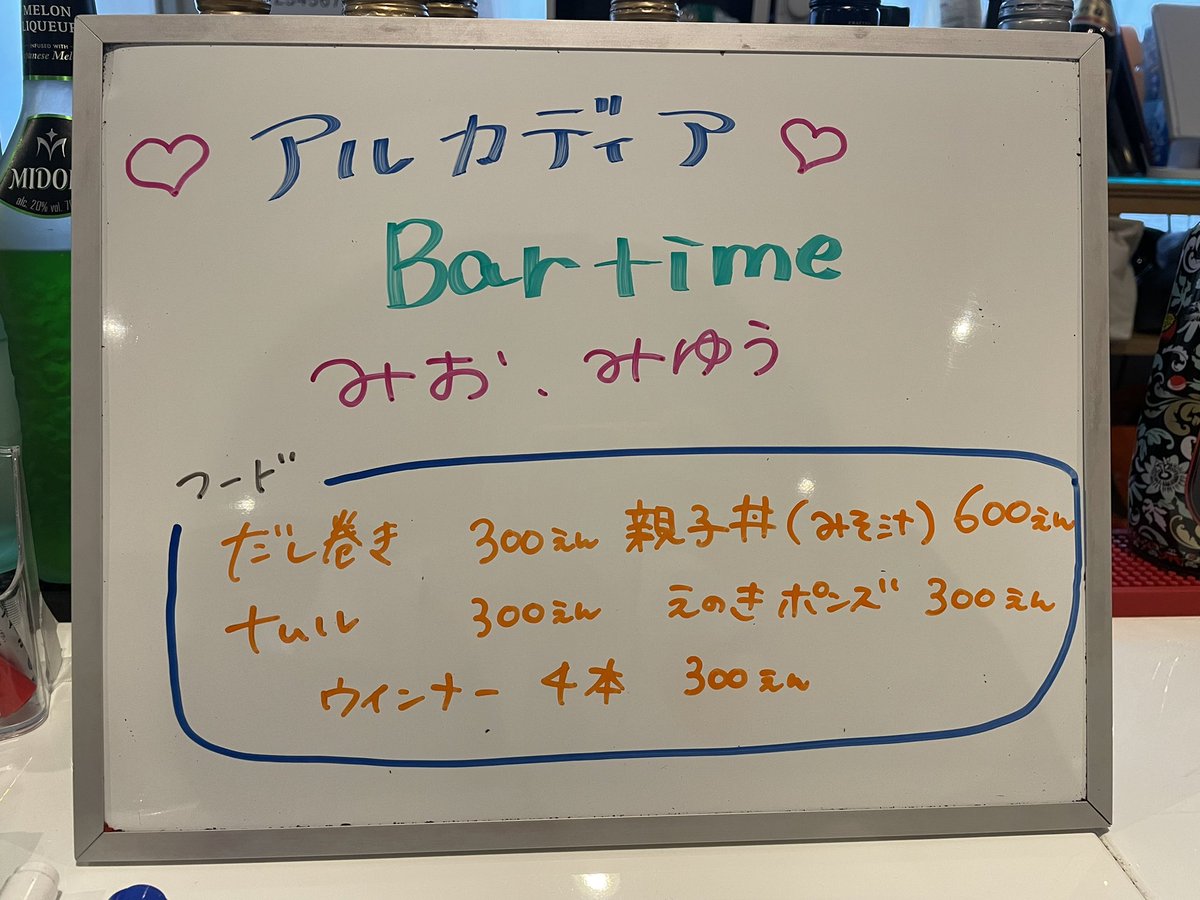 MELON
LIQUEUR
INFUSED WITH
MIDO
alc. 20% vol.
♡ アルカディア ♡
Bartime
みお、みゆう
フード
だし巻き 300えん 親子丼(みそ汁) 600えん
ナムル 300えん えのきポンズ 300えん
ウインナー 4本 300えん